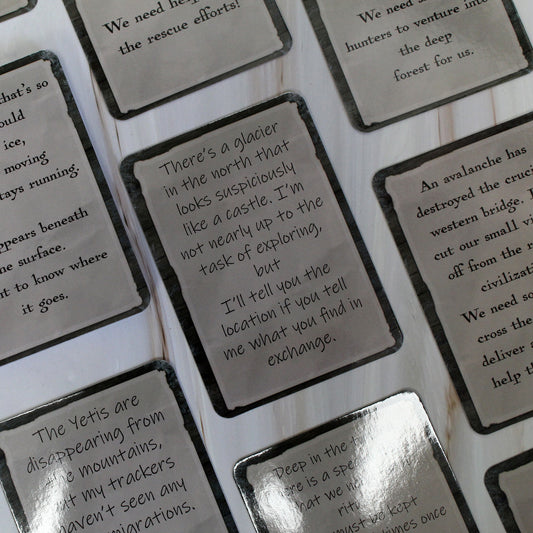 We need
the rescue efforts!
We need
hunters to venture into
the deep
forest for us.
that's so
ould
ice,
moving
tays running.
ppears beneath
ne surface.
nt to know where
it goes.
There's a glacier
in the north that
looks suspiciously
like a castle. I'm
not nearly up to the
task of exploring,
but
I'll tell you the
location if you tell
me what you find in
exchange.
An avalanche has
destroyed the cruci
western bridge. I
cut our small vi
off from the r
civilizati
We need so
cross the
deliver a
help th
The Yetis are
disappearing from
the mountains,
but my trackers
haven't seen any
migrations.
Deep in the
ere is a spe
hat we
ritu
must be kept
times once